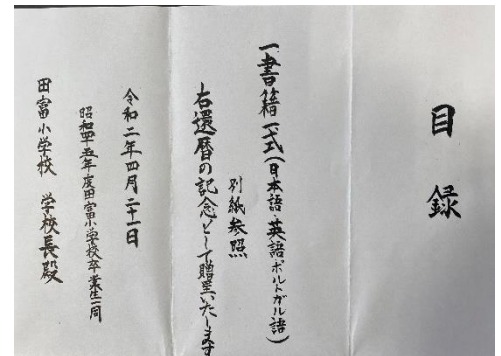 目録
一書籍一式(日本語・英語・ポルトガル語)
別紙参照
右還暦の記念として贈呈いたします
令和二年四月二十一日
昭和四十五年度田富小学校卒業生一同
田富小学校 学校長殿